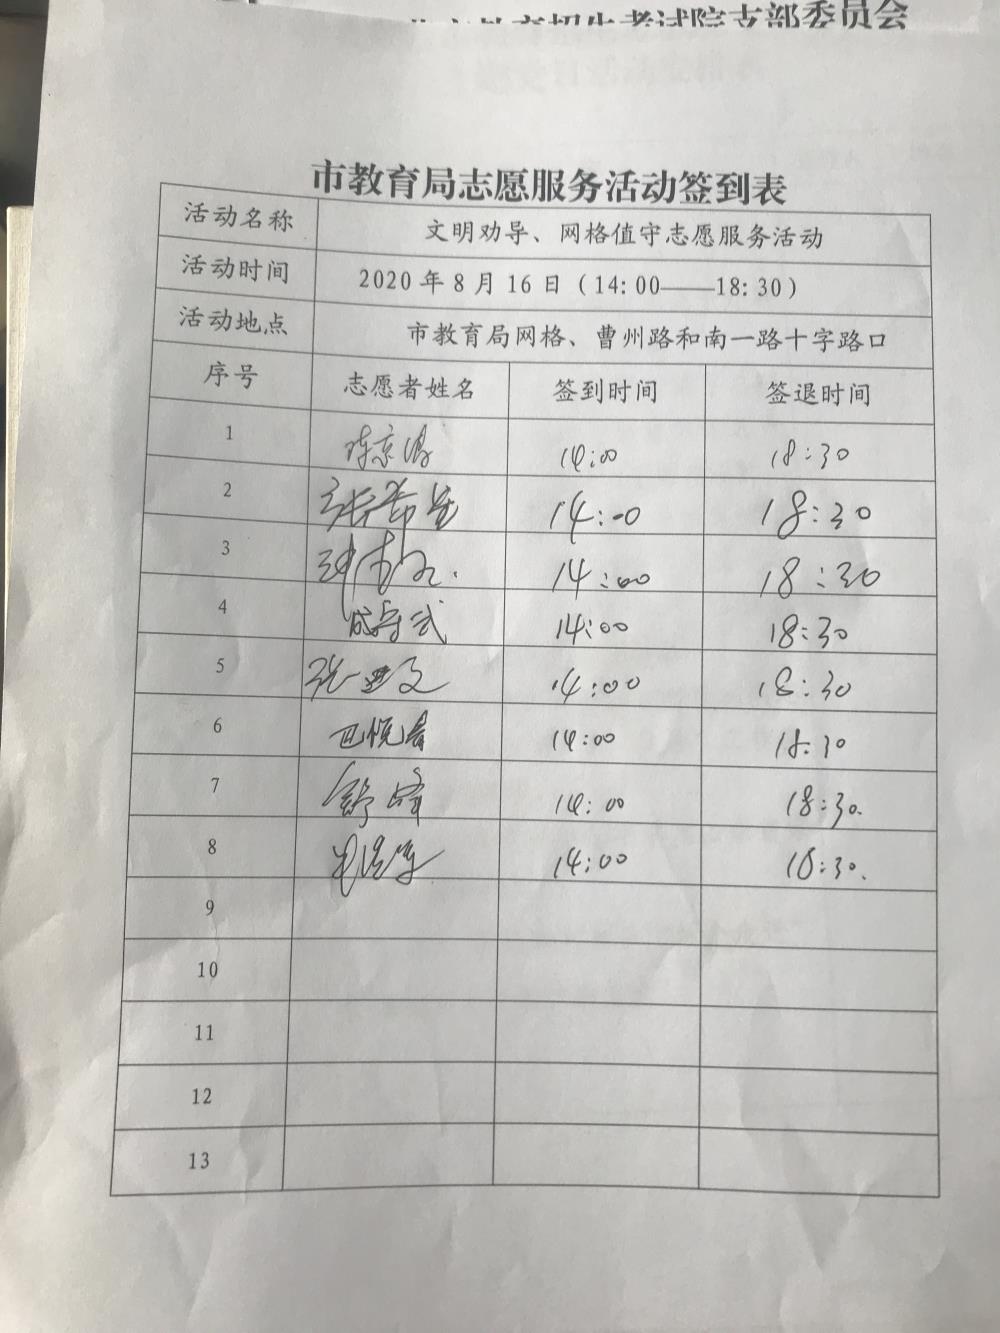 教育招生考试院支部委员会
市教育局志愿服务活动签到表
活动名称 文明劝导、网格值守志愿服务活动
活动时间 2020年8月16日（14:00——18:30）
活动地点 市教育局网格、曹州路和南一路十字路口
序号 志愿者姓名 签到时间 签退时间
1 14:00 18:30
2 14:00 18:30
3 14:00 18:30
4 14:00 18:30
5 14:00 18:30
6 14:00 18:30
7 舒峰 14:00 18:30.
8 14:00 18:30.
9
10
11
12
13